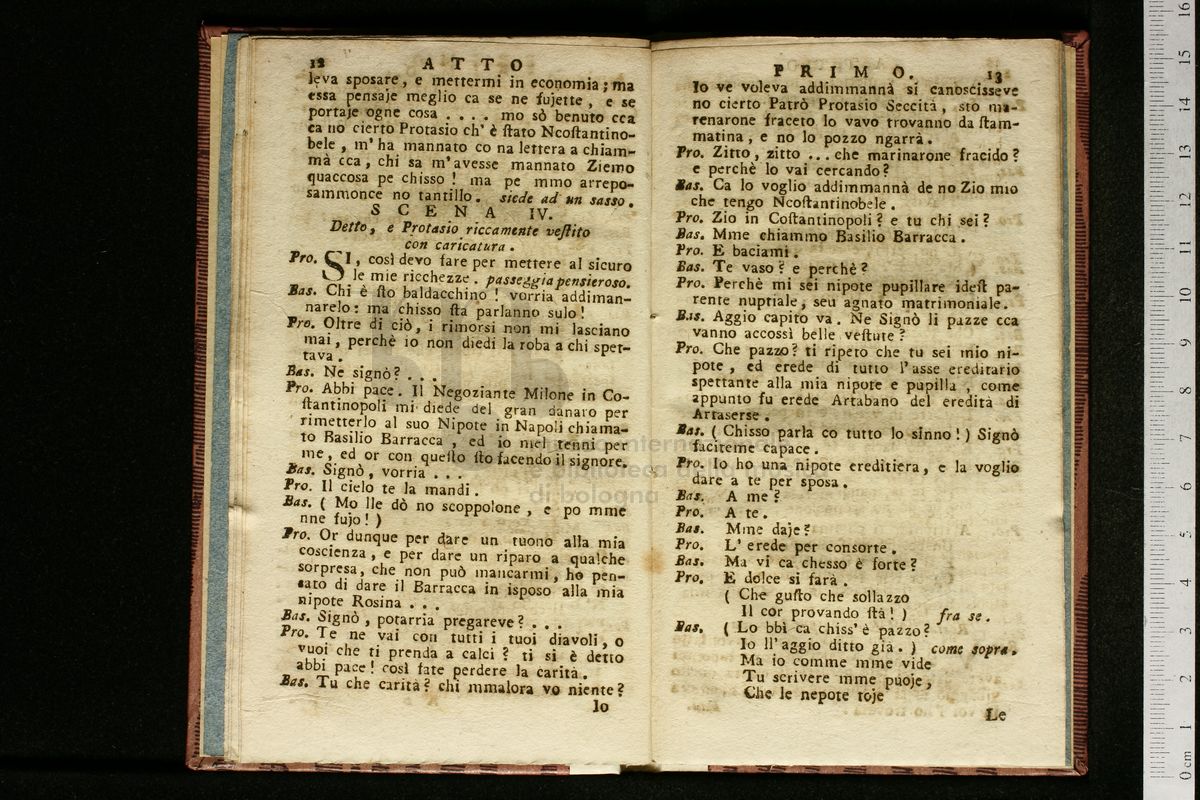 12 ATTO
leva sposare, e mettermi in economia; ma
essa pensaje meglio ca se ne fujette, e se
portaje ogne cosa .... mo sò benuto cca
ca no cierto Protasio ch' è ſtato Ncoſtantino-
bele, m' ha mannato co na lettera a chiam-
mà cca, chi sa m' avesse mannato Ziemo
quaccosa pe chisso! ma pe mmo arrepo-
sammonce no tantillo. siede ad un sasso.
SCENA IV.
Detto, e Protasio riccamente veſtito
con caricatura.
Pro. SI, così devo fare per mettere al sicuro
le mie ricchezze. passeggia pensieroso.
Bas. Chi è ſto baldacchino! vorria addiman-
narelo: ma chisso ſta parlanno sulo!
Pro. Oltre di ciò, i rimorsi non mi lasciano
mai, perchè io non diedi la roba a chi spet-
tava.
Bas. Ne signò? ...
Pro. Abbi pace. Il Negoziante Milone in Co-
ſtantinopoli mi diede del gran danaro per
rimetterlo al suo Nipote in Napoli chiama-
to Basilio Barracca, ed io mel tenni per
me, ed or con queſto ſto facendo il signore.
Bas. Signò, vorria ...
Pro. Il cielo te la mandi.
Bas. ( Mo lle dò no scoppolone, e po mme
nne fujo! )
Pro. Or dunque per dare un tuono alla mia
coscienza, e per dare un riparo a qualche
sorpresa, che non può mancarmi, ho pen-
sato di dare il Barracca in isposo alla mia
nipote Rosina ...
Bas. Signò, potarria pregareve? ...
Pro. Te ne vai con tutti i tuoi diavoli, o
vuoi che ti prenda a calci? ti si è detto
abbi pace! così fate perdere la carità.
Bas. Tu che carità? chi mmalora vo niente?
Io
PRIMO. 13
Io ve voleva addimmannà si canoscisseve
no cierto Patrò Protasio Seccità, sto ma-
renarone fraceto lo vavo trovanno da ſtam-
matina, e no lo pozzo ngarrà.
Pro. Zitto, zitto ... che marinarone fracido?
e perchè lo vai cercando?
Bas. Ca lo voglio addimmannà de no Zio mio
che tengo Ncoſtantinobele.
Pro. Zio in Coſtantinopoli? e tu chi sei?
Bas. Mme chiammo Basilio Barracca.
Pro. E baciami.
Bas. Te vaso? e perchè?
Pro. Perchè mi sei nipote pupillare ideſt pa-
rente nuptiale, seu agnato matrimoniale.
Bas. Aggio capito va. Ne Signò li pazze cca
vanno accossì belle veſtute?
Pro. Che pazzo? ti ripeto che tu sei mio ni-
pote, ed erede di tutto l' asse ereditario
spettante alla mia nipote e pupilla, come
appunto fu erede Artabano del eredità di
Artaserse.
Bas. ( Chisso parla co tutto lo sinno! ) Signò
faciteme capace.
Pro. Io ho una nipote ereditiera, e la voglio
dare a te per sposa.
Bas. A me?
Pro. A te.
Bas. Mme daje?
Pro. L' erede per consorte.
Bas. Ma vi ca chesso è forte?
Pro. E dolce si farà.
( Che guſto che sollazzo
Il cor provando ſtà! ) fra se.
Bas. ( Lo bbì ca chiss' è pazzo?
Io ll' aggio ditto già. ) come sopra.
Ma io comme mme vide
Tu scrivere mme puoje,
Che le nepote toje
Le
internazionale
biblioteca della musica
di bologna
0 cm 1 2 3 4 5 6 7 8 9 10 11 12 13 14 15 16